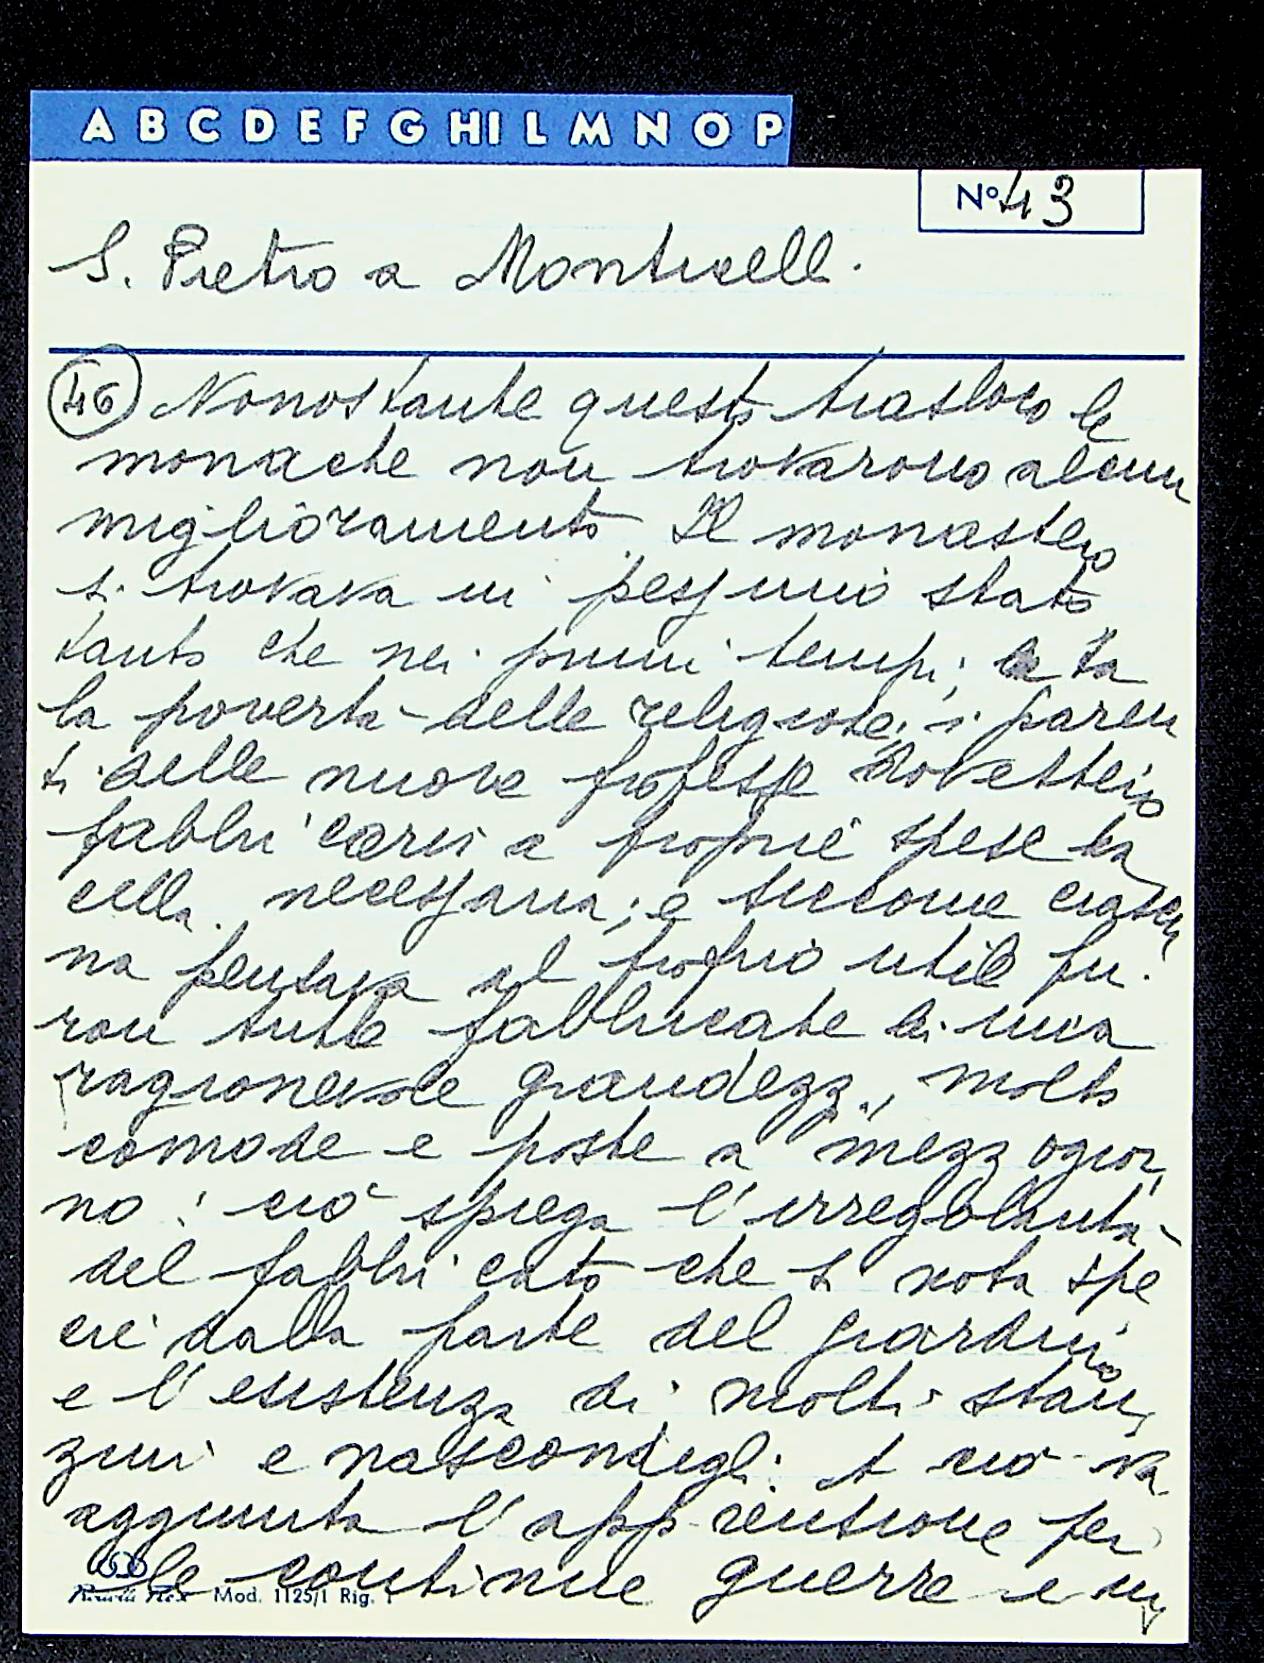 A B C D E F G HI L M N O P
Nº 43
S. Pietro a Monticelli.
46 Nonostante questo trasloco le
monache non trovarono alcun
miglioramento. Il monastero
si trovava in pessimo stato
tanto che nei primi tempi, data
la povertà delle religiose, i paren
ti delle nuove professe dovettero
fabbricarsi a proprie spese la
cella necessaria; e siccome ciascu
na pensava al proprio utile fu-
ron tutte fabbricate di una
ragionevole grandezza, molto
comode e poste a mezzogior
no: ciò spiega l'irregolarità
del fabbricato che si nota spe
cie dalla parte del giardino
e l'esistenza di molti stan
zini e nascondigli. A ciò va
aggiunta l'apprensione per
le continue guerre e in
Mod. 1125/1 Rig. 1